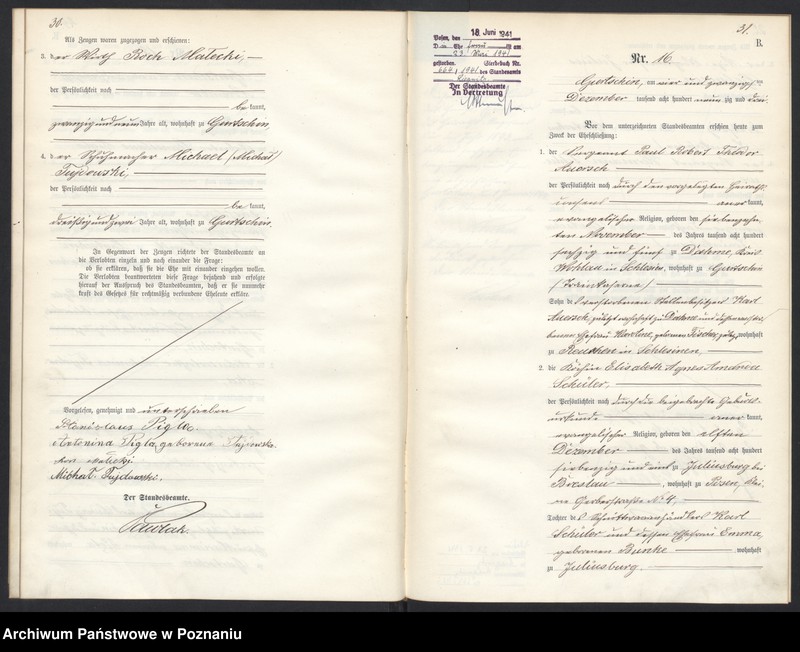 30.
Als Zeugen waren zugezogen und erschienen:
3. der Wirth Roch Malecki,
der Persönlichkeit nach
be kannt,
zwanzig und neun Jahre alt, wohnhaft zu Gurtschin,
4. der Schuhmacher Michael (Michał)
Fujdowski,
der Persönlichkeit nach
be kannt,
dreißig und zwei Jahre alt, wohnhaft zu Gurtschin.
In Gegenwart der Zeugen richtete der Standesbeamte an
die Verlobten einzeln und nach einander die Frage:
ob sie erklären, daß sie die Ehe mit einander eingehen wollen.
Die Verlobten beantworteten diese Frage bejahend und erfolgte
hierauf der Ausspruch des Standesbeamten, daß er sie nunmehr
kraft des Gesetzes für rechtmäßig verbundene Eheleute erkläre.
Vorgelesen, genehmigt und unterschrieben
Stanislaus Pigla.
Antonina Pigla, geborene
Michał Fujdowski.
Der Standesbeamte.
Pawlak.
Posen, den 18. Juni 1941
Ehe am
Mai 1941
gestorben. Sterbebuch Nr.
664, 1941 des Standesamts
Der Standesbeamte
In Vertretung
31.
B.
Nr. 16.
Gurtschin, am vier und zwanzig ten
Dezember tausend acht hundert neun zig und drei
Vor dem unterzeichneten Standesbeamten erschien heute zum
Zweck der Eheschließung:
1. der Sergeant Paul Robert
Auorsch
der Persönlichkeit nach durch den vorgelegten
aner kannt,
evangelischer Religion, geboren den siebenzehn
ten November des Jahres tausend acht hundert
sechzig und fünf zu Dahme, Kreis
Wohlau in Schlesien, wohnhaft zu Gurtschin
Sohn des verstorbenen Stellenbesitzers Karl
Auorsch, zuletzt wohnhaft zu Dahme und dessen
Ehefrau Karoline, geborenen Fischer, wohnhaft
zu Reuchen in Schlesien,
2. die Köchin Elisabeth Agnes Andrea
Schüler,
der Persönlichkeit nach durch die beigebrachte Geburts-
urkunde aner kannt,
evangelischer Religion, geboren den elften
Dezember des Jahres tausend acht hundert
siebenzig und zu Juliusburg bei
Breslau, wohnhaft zu Posen,
Gerberstraße No 4,
Tochter des Schnittwarenhändlers Karl
Schüler und dessen Ehefrau Emma,
geborenen Bunke wohnhaft
zu Juliusburg.
Archiwum Państwowe w Poznaniu